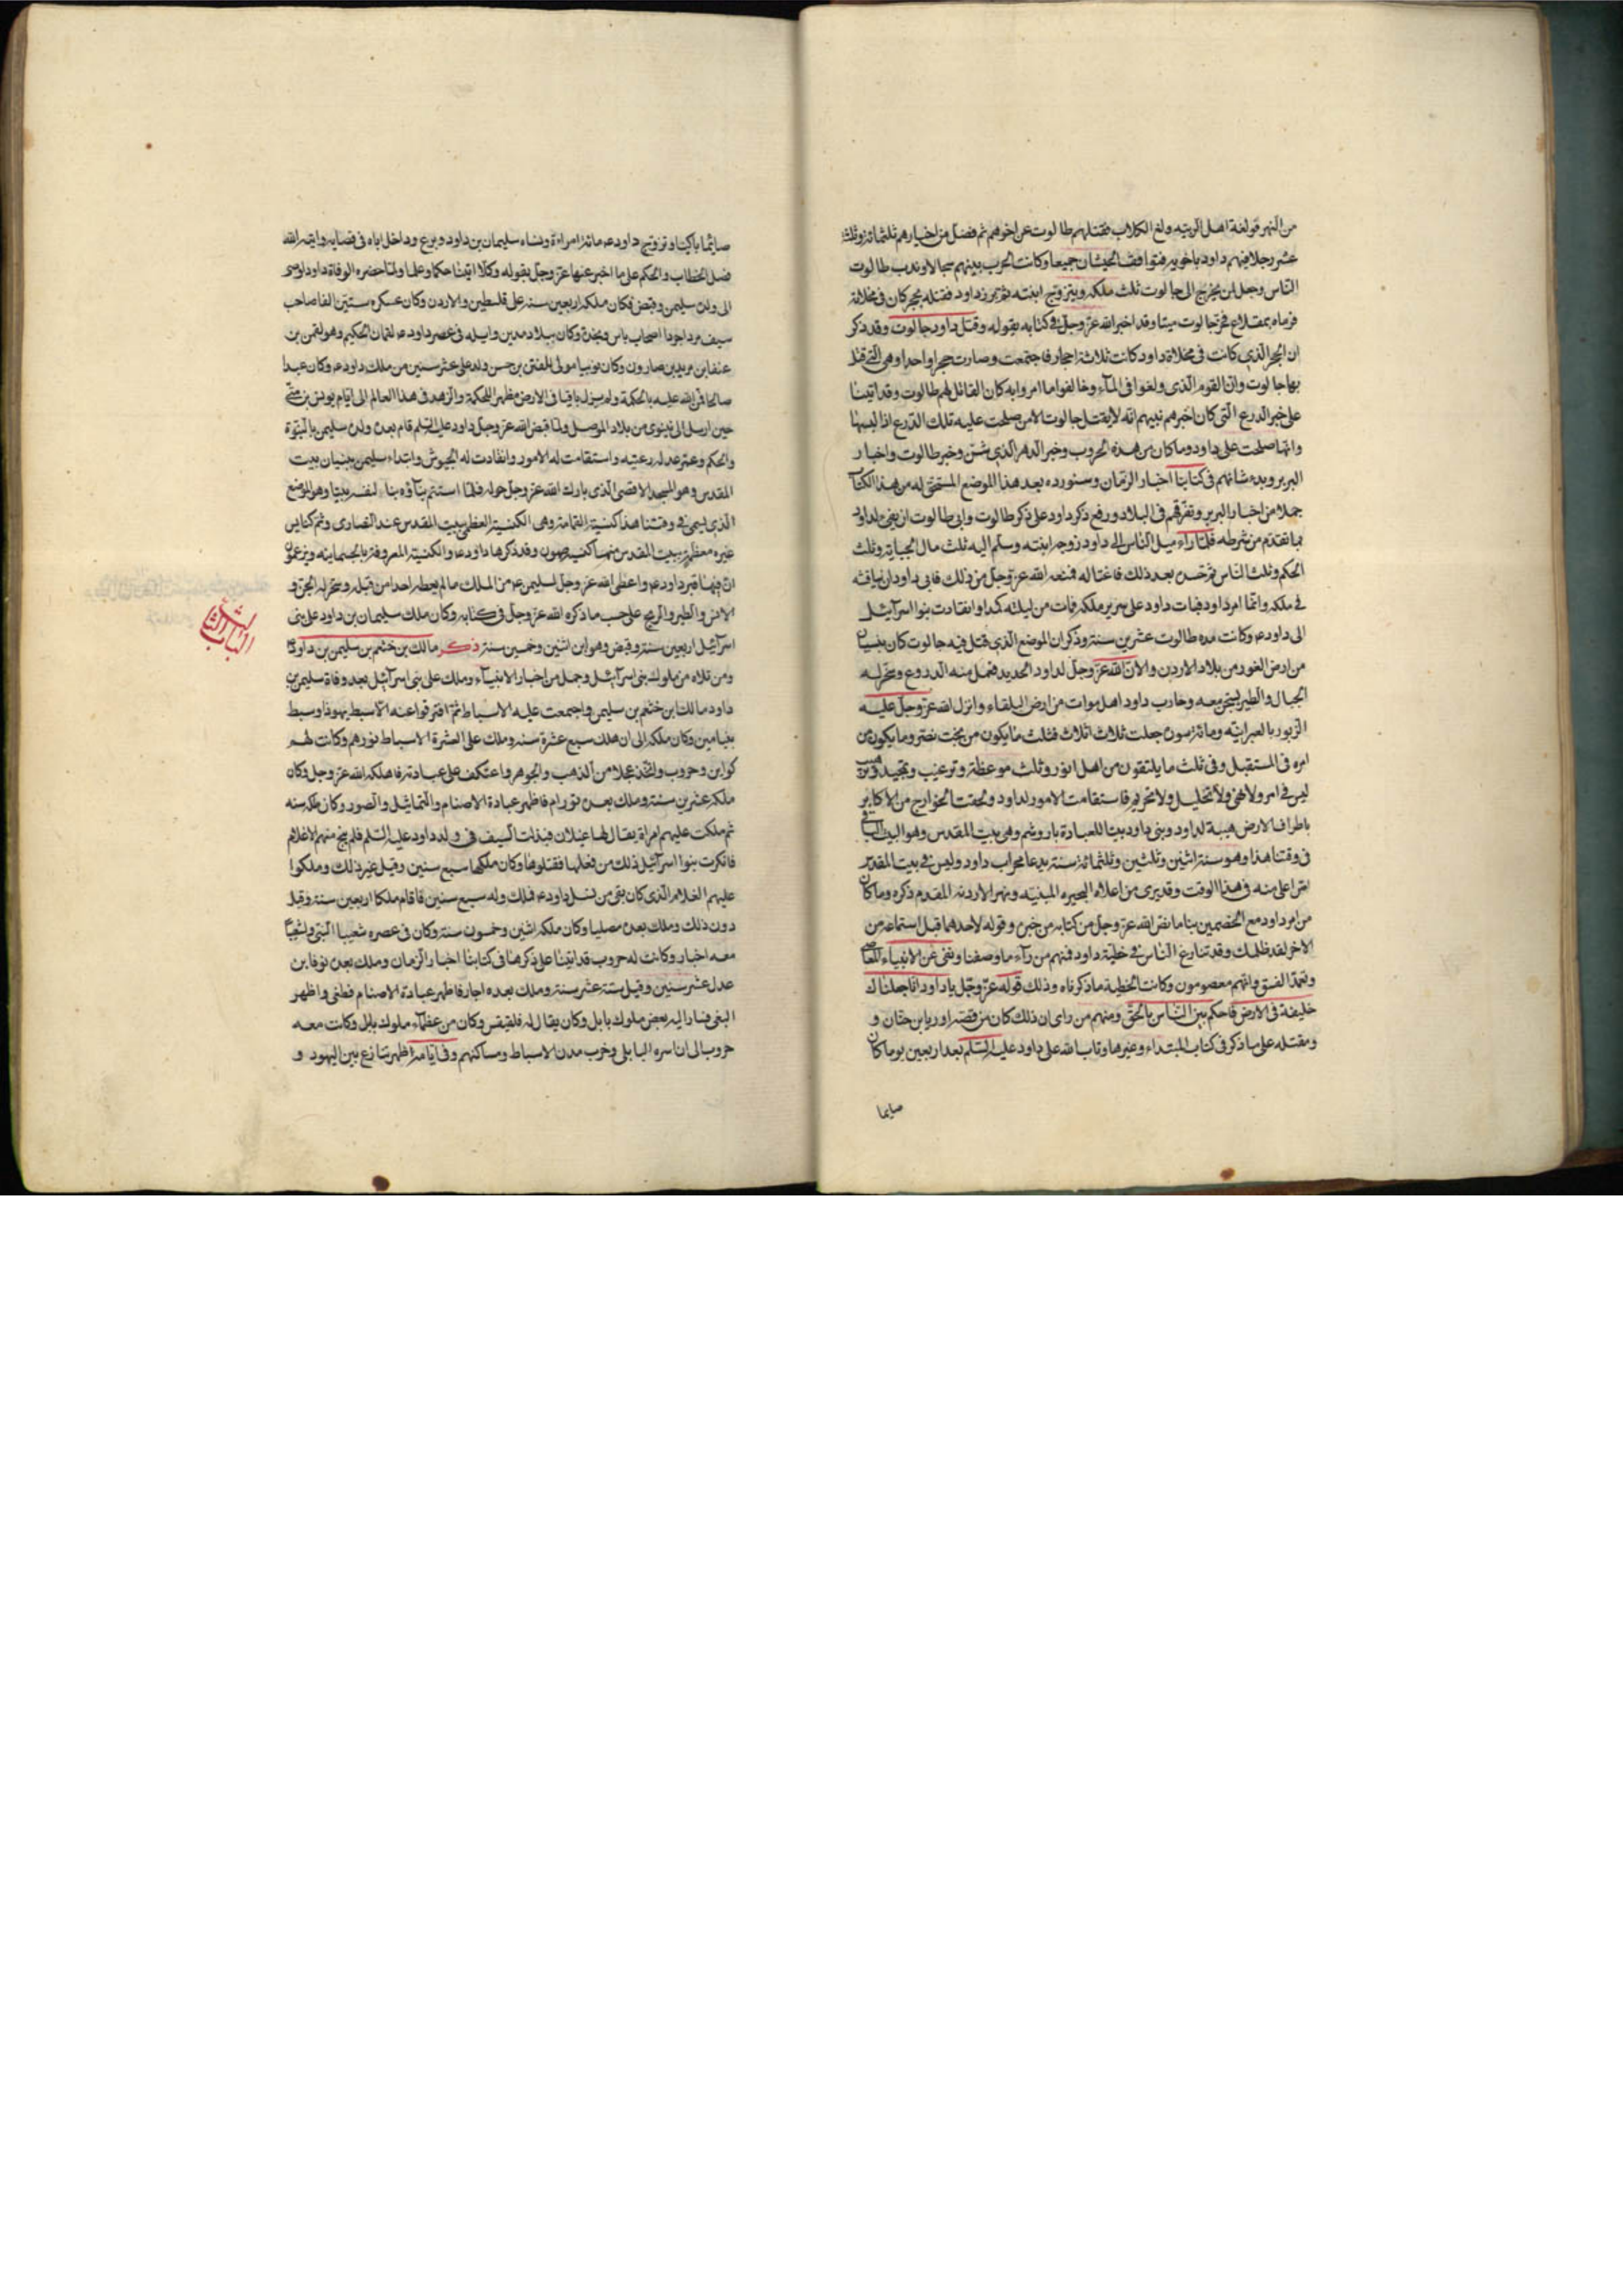 من النهر فولغة اهل الريته ولغ الكلاب فقتلهم طالوت عن اخرهم ثم فضل من اخيارهم ثلثمائة وثلثة
عشر رجلا فيهم داود باخوته فتوافق الجيشان جميعا وكانت الحرب بينهم سجالا وندب طالوت
الناس وجعل لمن يخرج الى جالوت ثلث ملكه ويتزوج ابنته فبرز داود فقتله بحجر كان فى مخلاته
فرماه بمقلاع فخر جالوت ميتا وقد اخبر الله عز وجل فى كتابه بقوله وقتل داود جالوت وقد ذكر
ان الحجر الذى كانت فى مخلاة داود كانت ثلاثة احجار فاجتمعت وصارت حجرا واحدا وهى التى قتل
بها جالوت وان القوم الذى ولغوا فى الماء وخالفوا ما امروا به كان القاتل لهم طالوت وقد اتينا
على خبر الدرع التى كان اخبرهم نبيهم انه لا يقتل جالوت الا من صلحت عليه تلك الدرع اذا لبسها
وانها صلحت على داود وما كان من هذه الحروب وخبر النهر الذى نشف وخبر طالوت واخبار
البربر وبدء شانهم فى كتابنا اخبار الزمان وسنورده بعد هذا الموضع المستحق له من هذا الكتاب
جملا من اخبار البربر وتفرقهم فى البلاد ورفع ذكر داود على ذكر طالوت وابى طالوت ان يفى لداود
بما تقدم من شرطه فلما راء ميل الناس الى داود زوجه ابنته وسلم اليه ثلث مال الجباية وثلث
الحكم وثلث الناس ثم حسده بعد ذلك فاغتاله فمنعه الله عز وجل من ذلك فابى داود ان ينافسه
فى ملكه وانما امر داود فبات داود على سرير ملكه فمات من ليلته كمدا وانقادت بنوا اسرائيل
الى داود ع وكانت مده طالوت عشرين سنة وذكر ان الموضع الذى قتل فيه جالوت كان ببيسان
من ارض الغور من بلاد الاردن والان الله عز وجل لداود الحديد فعمل منه الدروع وسخر له
الجبال والطير يسبحن معه وحارب داود اهل موات من ارض البلقاء وانزل الله عز وجل عليه
الزبور بالعبرانية ومائة سورة جعلت ثلاث اثلاث فثلث ما يكون من بخت نصر وما يكون من
امره فى المستقبل وفى ثلث ما يلتقون من اهل اثور وثلث موعظة وترغيب وتمجيد وترهيب
ليس فى امر ولا نهى ولا تحليل ولا تحريم فاستقامت الامور لداود ولحقت الخوارج من الاكابر
باطراف الارض هيبة لداود وبنى داود بيتا للعبادة باروشم وهى بيت المقدس وهو البيت الباقى
فى وقتنا هذا وهو سنة اثنين وثلثين وثلثمائة سنة يدعا محراب داود وليس فى بيت المقدس
اعلى منه فى هذا الوقت وقد يرى من اعلاه البحيره المنتنه ونهر الاردن المقدم ذكره وما كان
من امر داود مع الخصمين بنا ما نص الله عز وجل من كتابه من خبره وقوله لاحدهما قبل استماعه من
الاخر لقد ظلمك وقد تنازع الناس فى خطية داود فمنهم من راء ما وصفنا ونفى عن الانبياء المعاصى
وتعمد الفسق وانهم معصومون وكانت الخطية ما ذكرناه وذلك قوله عز وجل يا داود انا جعلناك
خليفة فى الارض فاحكم بين الناس بالحق ومنهم من راى ان ذلك كان من قصة اوريا بن حنان و
ومقتله على ما ذكر فى كتاب المبتداء وغيرها وتاب الله على داود عليه السلم بعد اربعين يوما كان
صايما
صايما باكيا وتزوج داود ع مائة امراءة ونشاء سليمان بن داود وبرع وداخل اباه فى قضايه واتيه الله
فصل الخطاب والحكم على ما اخبر عنها عز وجل بقوله وكلا اتينا حكما وعلما ولما حضره الوفاة داود اوصى
الى ولده سليمن وقبض فكان ملكه اربعين سنه على فلسطين والاردن وكان عسكره ستين الفا صاحب
سيف مردا جردا اصحاب باس ونجدة وكان ببلاد مدين وايله فى عصر داود ع لقمان الحكيم وهو لقمن بن
عنقا بن مربد بن صارون وكان نوبيا مولى للقين بن جسر ولد على عشر سنين من ملك داود ع وكان عبدا
صالحا فمن الله عليه بالحكمة ولم يزل باقيا فى الارض مظهرا للحكمة والزهد فى هذا العالم الى ايام يونس بن متى
حين ارسل الى نينوى من بلاد الموصل ولما قبض الله عز وجل داود عليه السلم قام بعده ولده سليمن بالنبوة
والحكم وعمر عدله رعيته واستقامت له الامور وانقادت له الجيوش وابتداء سليمن ببنيان بيت
المقدس وهو المسجد الاقصى الذى بارك الله عز وجل حوله فلما استتم بناؤه بناء لنفسه بيتا وهو الموضع
الذى يسمى فى وقتنا هذا كنيسة القمامة وهى الكنيسة العظمى ببيت المقدس عند النصارى وثم كنايس
غيره معظمة ببيت المقدس منها كنيسة صهيون وقد ذكرها داود ع والكنيسة المعروفة بالجسمانيه ويزعمون
ان فيها قبر داود ع واعطى الله عز وجل لسليمن ع من الملك ما لم يعطه احدا من قبله وسخر له الجن و
الانس والطير والريح على حسب ما ذكره الله عز وجل فى كتابه وكان ملك سليمان بن داود على بنى
اسرائيل اربعين سنة وقبض وهو ابن اثنين وخمسين سنة ذكر مالك بن خثعم بن سليمن بن داود
ومن تلاه من ملوك بنى اسرائيل وجمل من اخبار الانبياء وملك على بنى اسرائيل بعد وفاة سليمن بن
داود مالك ابن خثعم بن سليمن واجتمعت عليه الاسباط ثم افترقوا عنه الا سبط يهوذا وسبط
بنيامين وكان ملكه الى ان هلك سبع عشرة سنه وملك على العشرة الاسباط نورهم وكانت لهم
كواين وحروب واتخذ عجلا من الذهب والجوهر واعتكف على عبادته فاهلكه الله عز وجل وكان
ملكه عشرين سنة وملك بعده نورام فاظهر عبادة الاصنام والتماثيل والصور وكان ملكه سنه
ثم ملكت عليهم امراة يقال لها عيلان فبذلت السيف فى ولد داود عليه السلم فلم ينج منهم الا غلام
فانكرت بنوا اسرائيل ذلك من فعلها فقتلوها وكان ملكها سبع سنين وقيل غير ذلك وملكوا
عليهم الغلام الذى كان بقى من نسل داود ع فملك وله سبع سنين فاقام ملكا اربعين سنة وقيل
دون ذلك وملك بعده مصليا وكان ملكه اثنين وخمسون سنة وكان فى عصره شعيبا النبى ولشعيا
معه اخبار وكانت له حروب قد اتينا على ذكرها فى كتابنا اخبار الزمان وملك بعده نوفا بن
عدل عشر سنين وقيل ستة عشر سنة وملك بعده اجار فاظهر عبادة الاصنام فطغى واظهر
البغى فسار اليه بعض ملوك بابل وكان يقال له فلقيفس وكان من عظماء ملوك بابل وكانت معه
حروب الى ان اسره البابلى وخرب مدن الاسباط ومساكنهم وفى ايامه اظهر تنازع بين اليهود و